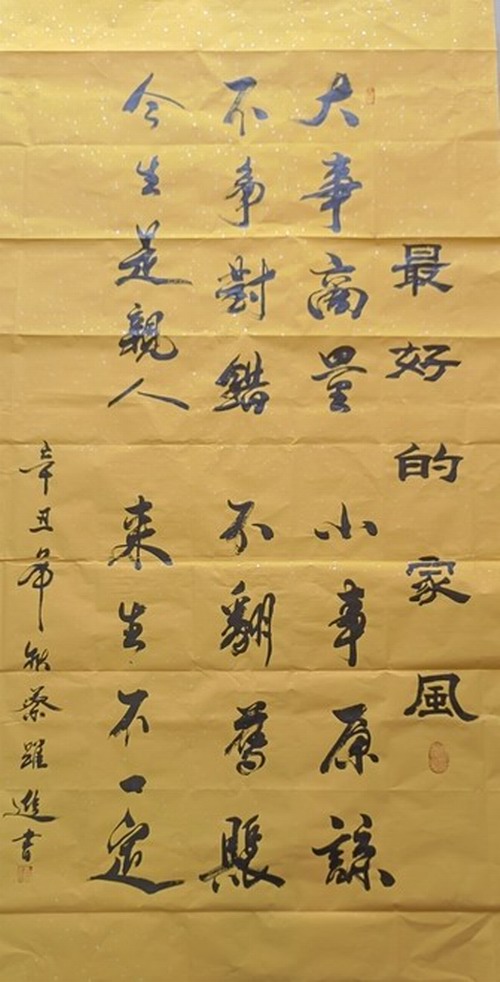 最好的家風
大事商量 小事原諒
不争對錯 不翻舊賬
今生是親人 来生不一定
辛丑年秋蔡躍進書